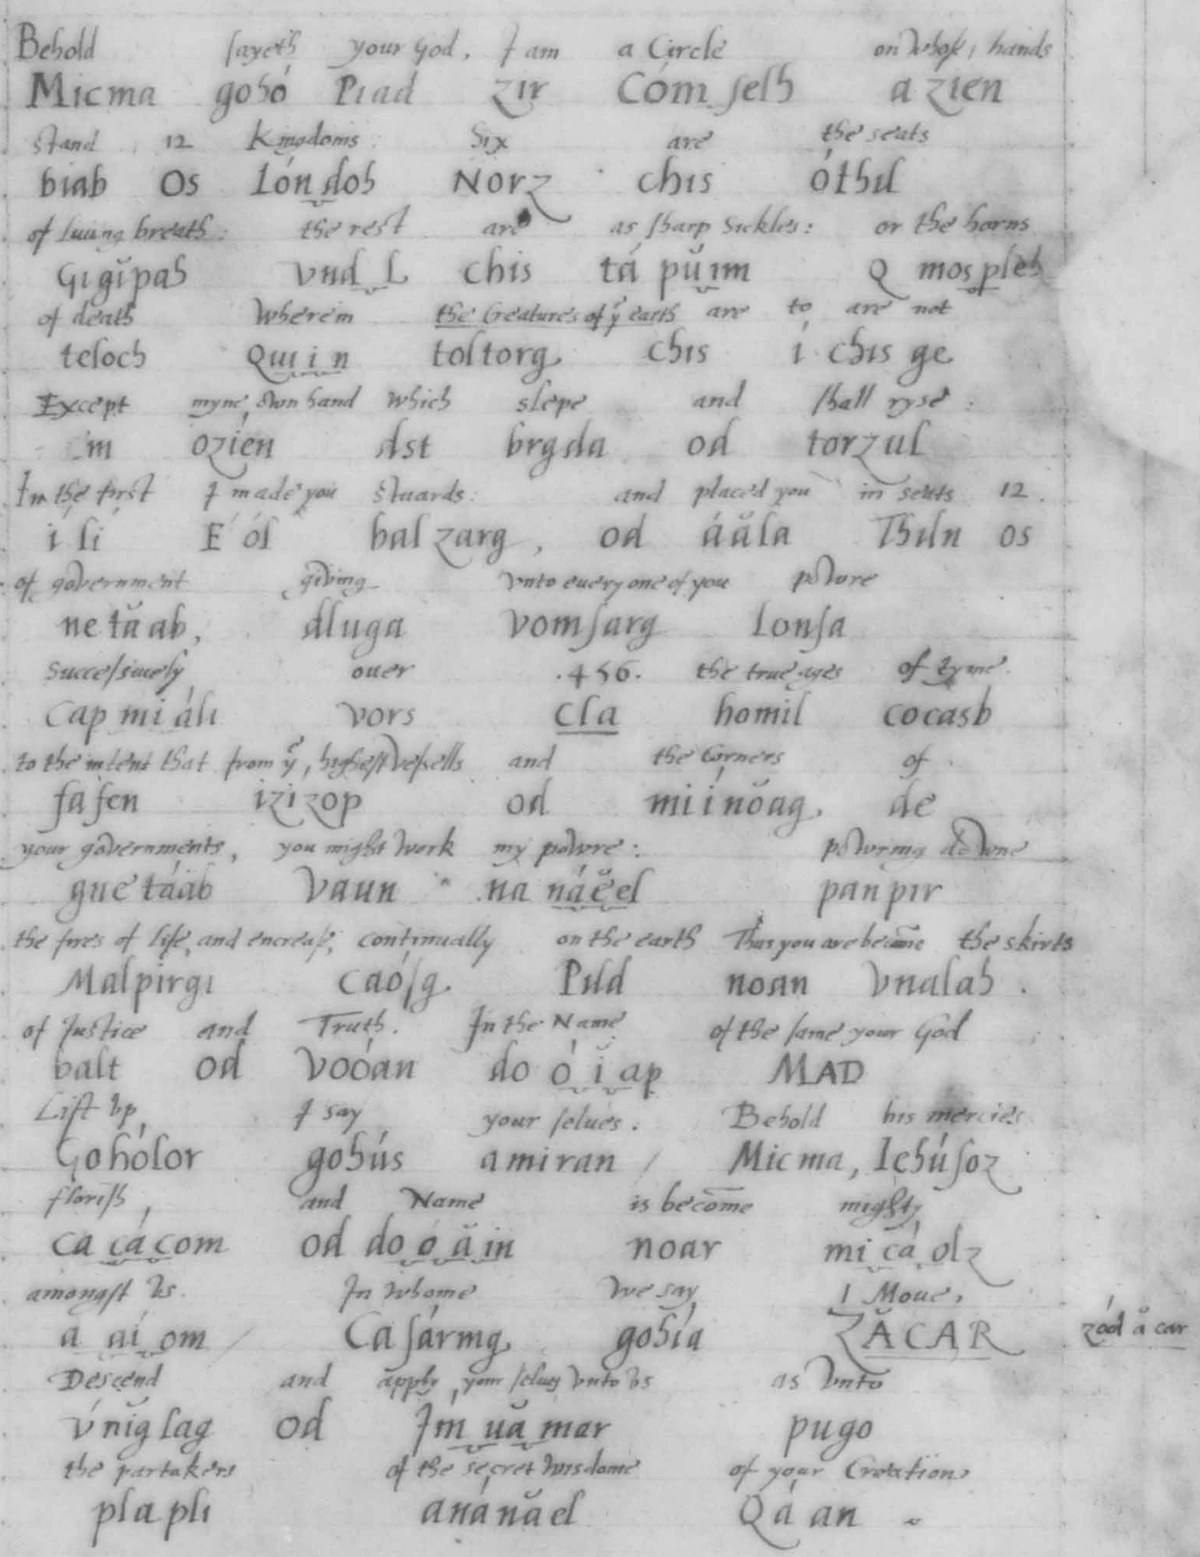 Behold sayeth your God, I am a Circle on whose hands
Micma gohó Piad zir Cómselh azien
stand 12 Kingdoms: Six are the seats
biab Os Lóndoh Norz chis óthil
of living breath: the rest are as sharp Sickles: or the horns
Gigĭpah vnd L chis tá pŭim Q mospleh
of death Wherein the Creatures of yͤ earth are to are not
teloch Quiin toltorg chis í chis ge
Except myne own hand which slepe and shall ryse:
m ozíen dst brgda od torzul
In the first I made you stuards: and placed you in seats 12.
í lí E ól balzarg, od áăla Thiln os
of government giving vnto every one of you powre
netăab, dluga vomsarg lonsa
Successively ouer .456. the true ages of tyme.
Cap mi áli vors cla homil cocasb
to the intent that from yͤ, highest vessells and the Corners of
fafen izizop od miínŏag de
your governments, you might work my powre: powring downe
gnetáab vaun na náĕel panpir
the fires of life, and encrease, continually on the earth Thus you are becōme the skirts
Malpirgi caósg Pild noan vnalah.
of Justice and Truth. In the Name of the same your God
balt od vooán do ó ĭ ap MAD
Lift vp, I say your selues. Behold his mercies
Gohólor gohús amiran / Micma, Iehúsoz
florish, and Name is becōme mighty
ca cá com od do ó ă in noar mi cá olz
amongst vs. In whome we say I Moue,
a aí om / Casármg gohía ZĂCAR zód ă car
Descend and apply your selues vnto vs as vnto
vnĭglag od Im uă mar pugo
the partakers of the secret wisdome of your Creation
plapli anánăel Qá an